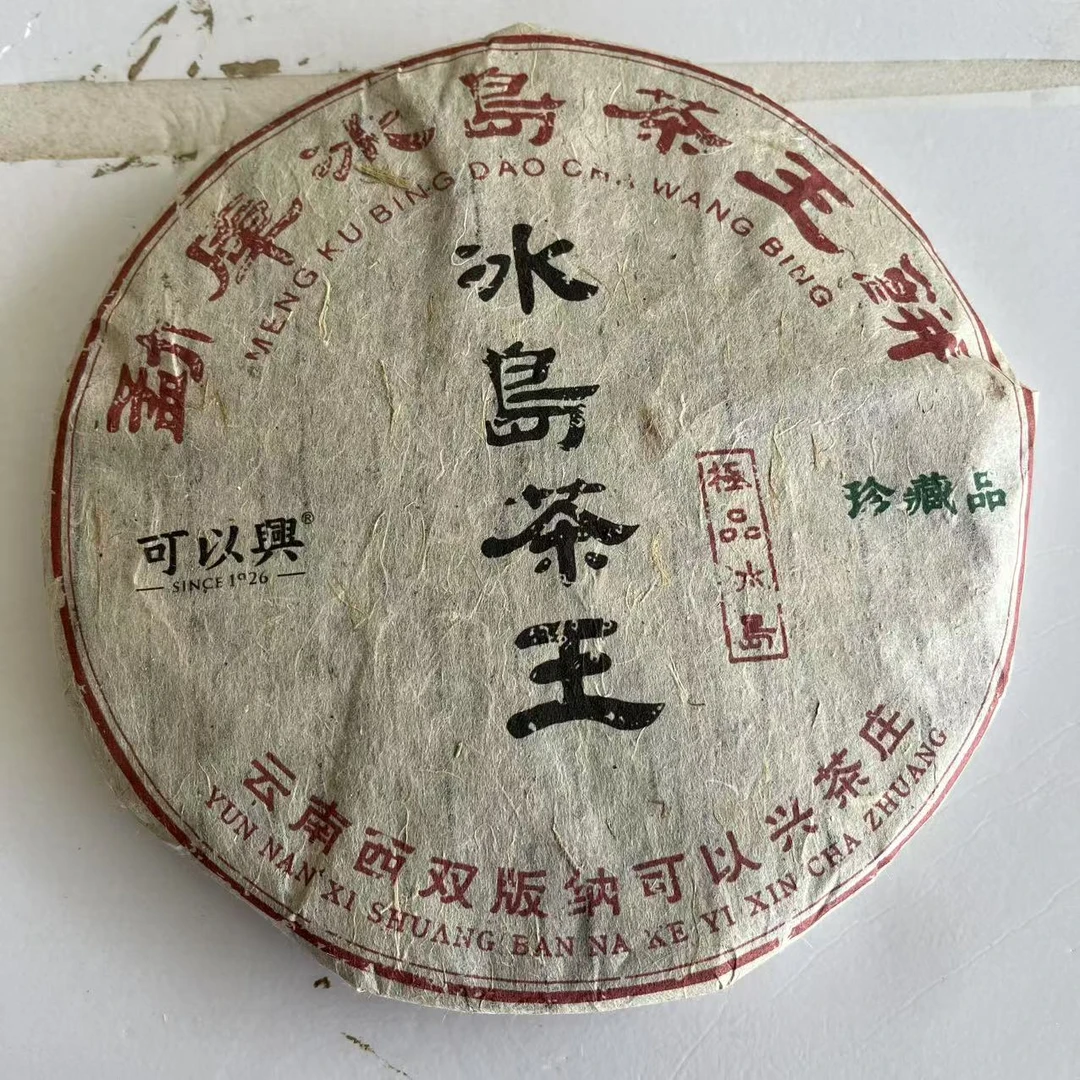 勐库冰島茶王餅
MENG KU BING DAO CHA WANG BING
冰島茶王
極品冰島
珍藏品
可以興®
SINCE 1926
云南西双版纳可以兴茶庄
YUN NAN XI SHUANG BAN NA KE YI XIN CHA ZHUANG